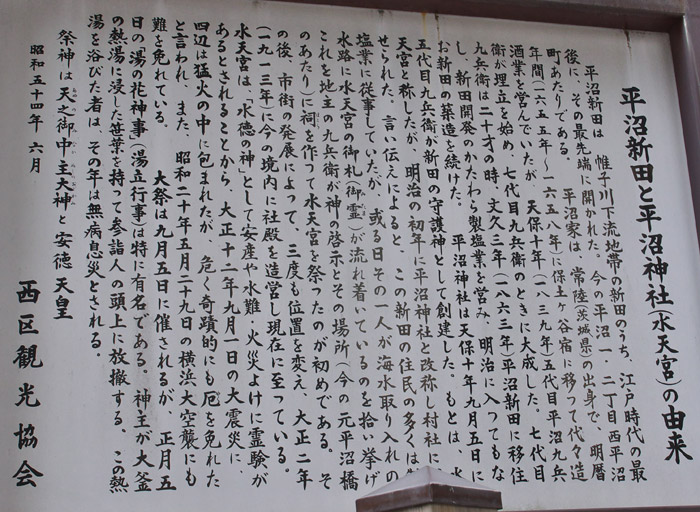 平沼新田と平沼神社(水天宮)の由来
平沼新田は、帷子川下流地帯の新田のうち、江戸時代の最
後に、その最先端に開かれた。今の平沼一、二丁目西平沼
町あたりである。平沼家は、常陸(茨城県)の出身で、明暦
年間(一六五五年〜一六五八年)に保土ヶ谷宿に移って代々造
酒業を営んでいたが、天保十年(一八三九年)五代目平沼九兵
衛が埋立を始め、七代目九兵衛のときに大成した。七代目
九兵衛は二十才の時、文久三年(一八六三年)平沼新田に移住
し、新田開発のかたわら製塩業を営み、明治に入ってもな
お新田の築造を続けた。平沼神社は天保十年九月五日に
五代目九兵衛が新田の守護神として創建した。もとは、水
天宮と称したが、明治の初年に平沼神社と改称し村社に
せられた。言い伝えによると、この新田の住民の多くは
塩業に従事していたが、或る日その一人が海水取り入れの
水路に水天宮の御札(御霊)が流れ着いているのを拾い挙げ
これを地主の九兵衛が神の啓示とその場所(今の元平沼橋
のあたり)に祠を作って水天宮を祭ったのが初めである。そ
の後、市街の発展によって、三度も位置を変え、大正二年
(一九一三年)に今の境内に社殿を造営し現在に至っている。
水天宮は、「水徳の神」として安産や水難・火災よけに霊験が
あるとされることから、大正十二年九月一日の大震災に
四辺は猛火の中に包まれたが、危く奇蹟的にも厄を免れた
と言われ、また、昭和二十年五月二十九日の横浜大空襲にも
難を免れている。大祭は九月五日に催されるが、正月五
日の湯の花神事(湯立行事)は特に有名である。神主が大釜
の熱湯に浸した笹葉を持って参詣人の頭上に放撤する。この熱
湯を浴びた者は、その年は無病息災とされる。
祭神は天之御中主大神と安徳天皇
昭和五十四年六月
西区観光協会